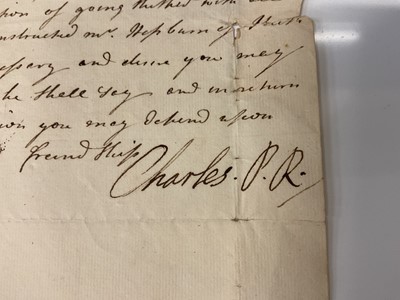 tion of going thither with
nstructed Mr. Hepburn of
essary and desire you may
he Shall Say and in return
you may depend upon
freind Ship
Charles. P. R.